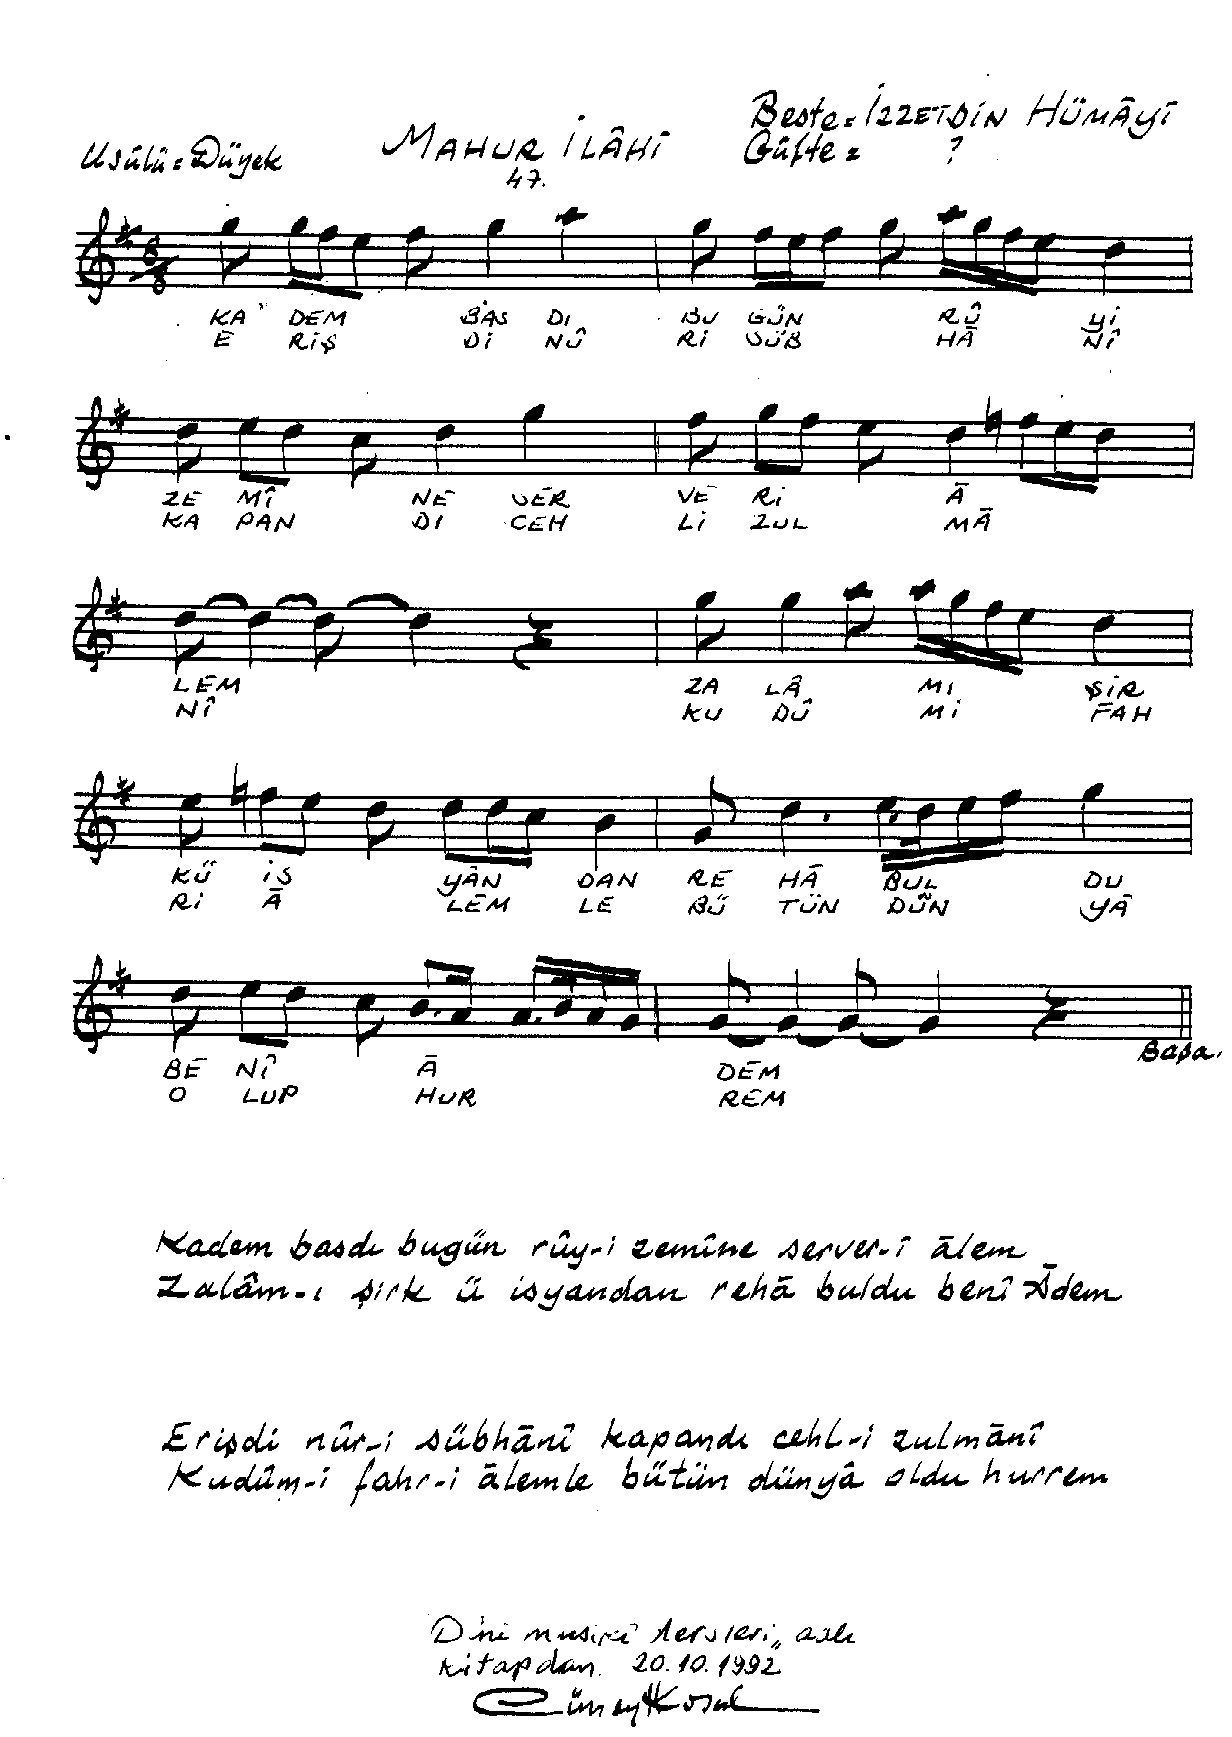 Beste = İZZETDİN HÜMÂYÎ
Usûlü = Düyek MAHUR İLÂHÎ Güfte = ?
47.
8
8
KA DEM BAS DI BU GÜN RÛ Yİ
E RİŞ Dİ NÛ Rİ SÜB HÂ NÎ
ZE MÎ NE SER VE Rİ Â
KA PAN DI CEH Lİ ZUL MÂ
LEM ZA LÂ MI ŞİR
NÎ KU DÛ Mİ FAH
KÜ İS YÂN DAN RE HÂ BUL DU
Rİ Â LEM LE BÜ TÜN DÜN YÂ
Başa.
BE NÎ Â DEM
O LUP HUR REM
Kadem basdı bugün rûy-i zemîne server-î âlem
Zalâm-ı şirk ü isyandan rehâ buldu benî Âdem
Erişdi nûr-i sübhânî kapandı cehl-i zulmânî
Kudûm-i fahr-i âlemle bütün dünyâ oldu hurrem
Dini musikî dersleri„ aslı
kitapdan. 20.10.1992